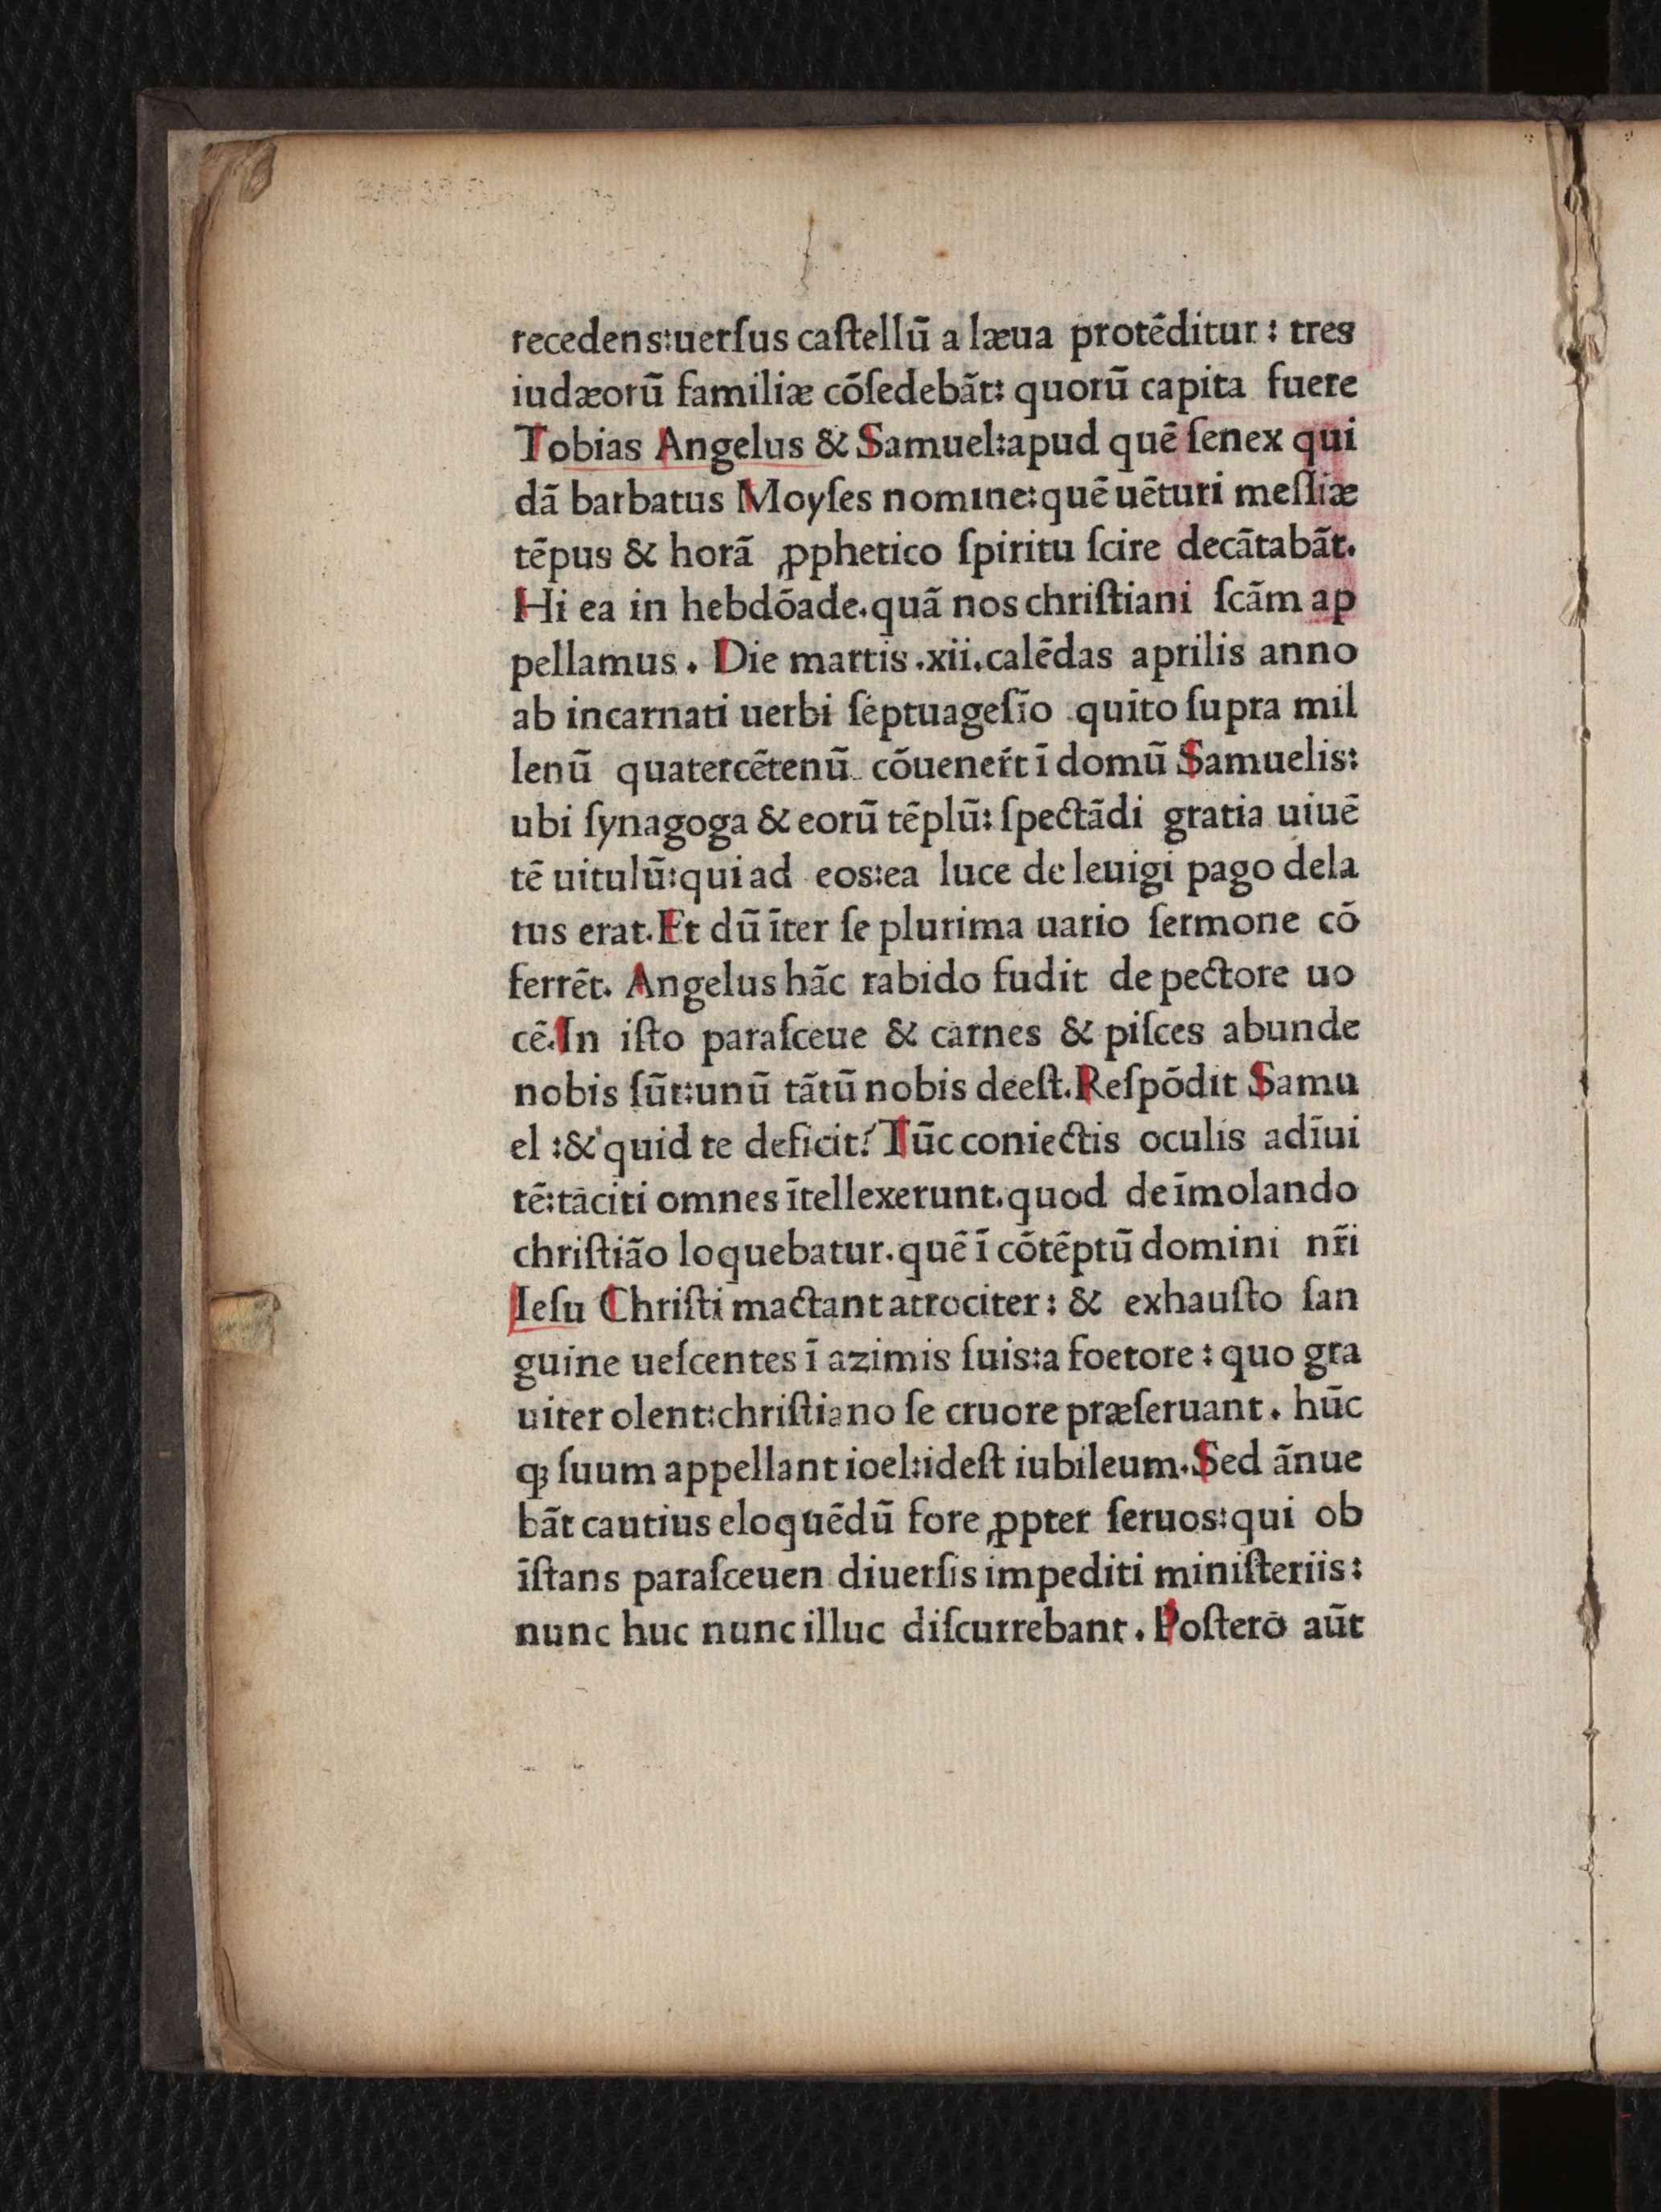 recedens:uerſus caſtellū a læua protēditur : tres
iudæorū familiæ cōſedebāt: quorū capita fuere
Tobias Angelus & Samuel:apud quē ſenex qui
dā barbatus Moyſes nomine:quē uēturi meſſiæ
tēpus & horā ꝓphetico ſpiritu ſcire decātabāt.
Hi ea in hebdōade.quā nos chriſtiani ſcām ap
pellamus . Die martis .xii.calēdas aprilis anno
ab incarnati uerbi ſeptuageſīo quīto ſupra mil
lenū quatercētenū cōuenert̄ ī domū Samuelis:
ubi ſynagoga & eorū tēplū: ſpectādi gratia uiuē
tē uitulū:qui ad eos:ea luce de leuigi pago dela
tus erat.Et dū īter ſe plurima uario ſermone cō
ferrēt. Angelus hāc rabido fudit de pectore uo
cē.In iſto paraſceue & carnes & piſces abunde
nobis ſūt:unū tātū nobis deeſt.Reſpōdit Samu
el :& quid te deficit? Tūc coniectis oculis adīui
tē:taciti omnes ītellexerunt.quod de īmolando
chriſtiāo loquebatur.quē ī cōtēptū domini nr̄i
Ieſu Chriſti mactant atrociter : & exhauſto ſan
guine ueſcentes ī azimis ſuis:a foetore : quo gra
uiter olent:chriſtiano ſe cruore præſeruant . hūc
qꝫ ſuum appellant ioel:ideſt iubileum.Sed ānue
bāt cautius eloquēdū fore ꝓpter ſeruos:qui ob
īſtans paraſceuen diuerſis impediti miniſteriis:
nunc huc nunc illuc diſcurrebant . Poſtero aūt